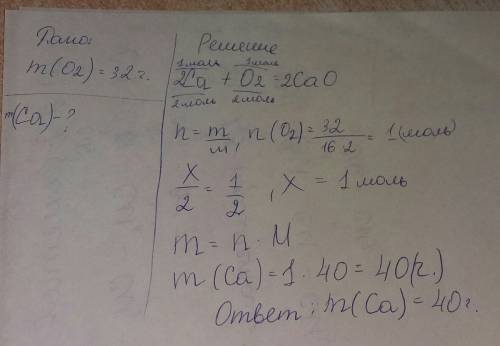 Дано:
m(O2) = 32 г.
m(Ca) - ?
Решение
1 моль 1 моль
2Ca + O2 = 2CaO
2 моль 2 моль
n = m/м, n(O2) = 32/16·2 = 1 (моль)
X/2 = 1/2, X = 1 моль
m = n · M
m (Ca) = 1 · 40 = 40(г.)
Ответ: m(Ca) = 40 г.